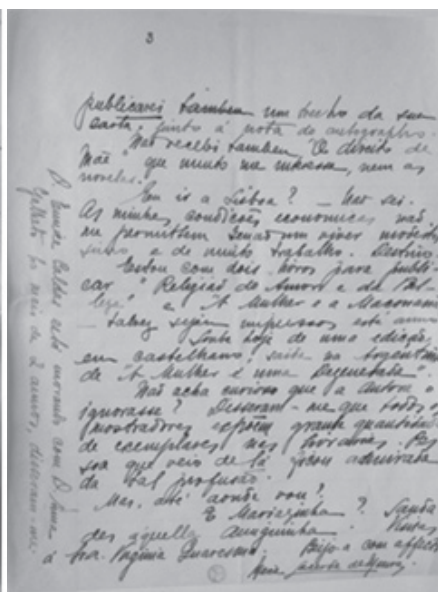 3
publicarei tambem um trecho da sua
carta, junto á nota do autographo.
Não recebi tambem "O direito de
Mãe" que muito me interessa, nem as
novelas.
Eu ir a Lisboa? — Não sei.
As minhas condições economicas não
me permittem senão um viver modestis-
simo e de muito trabalho. Destino.
Estou com dois livros para publi-
car "Religião do Amor e da Bel-
leza" e "A Mulher e a Maçonaria"
— talvez sejam impressos este anno
Soube hoje de uma edição
em castelhano, saída na Argentina
de "A Mulher é uma Degenerada".
Não acha curioso que a autora o
ignorasse? Disseram-me que todos os
mostradores expõem grande quantidade
de exemplares nas livrarias. Pes
soa que veio de lá ficou admirada
da tal profusão.
Mas, até aonde vou?
E Mariazinha? Sauda
des áquella amiguinha. Visitas
á Sra. Virginia Quaresma. Beijo-a com affecto
Maria Lacerda de Moura
está morando com D.
ha mais de 2 annos, disseram-me.